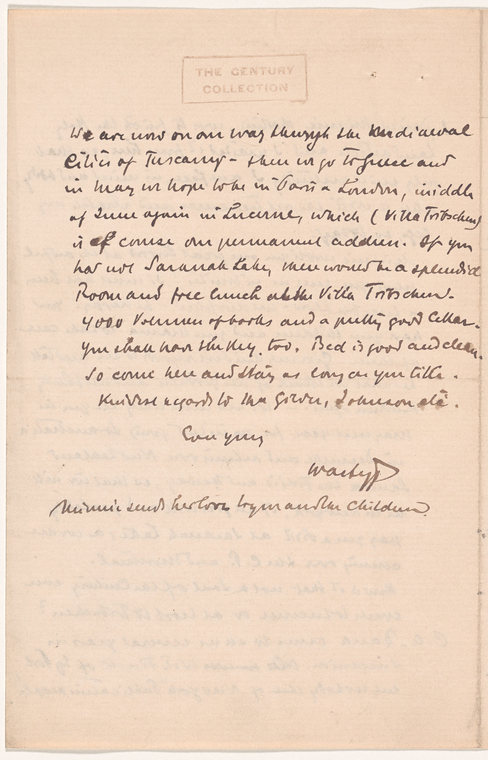 THE CENTURY
COLLECTION
We are now on our way through the Mediaeval
Cities of Tuscany - then we go to Greece and
in May we hope to be in Paris & London, middle
of June again in Lucerne, which (Villa Tribschen)
is of course our permanent address. If you
had not Saranak Lake, there would be a splendid
Room and free lunch at the Villa Tribschen -
4000 Volumes of books and a pretty good Cellar -
you shall have the Key, too. Bed is good and clean.
So come here and stay as long as you like.
Kindest regards to the Gilders, Johnson etc.
Ever yours
Minnie sends her love to you and the Children.